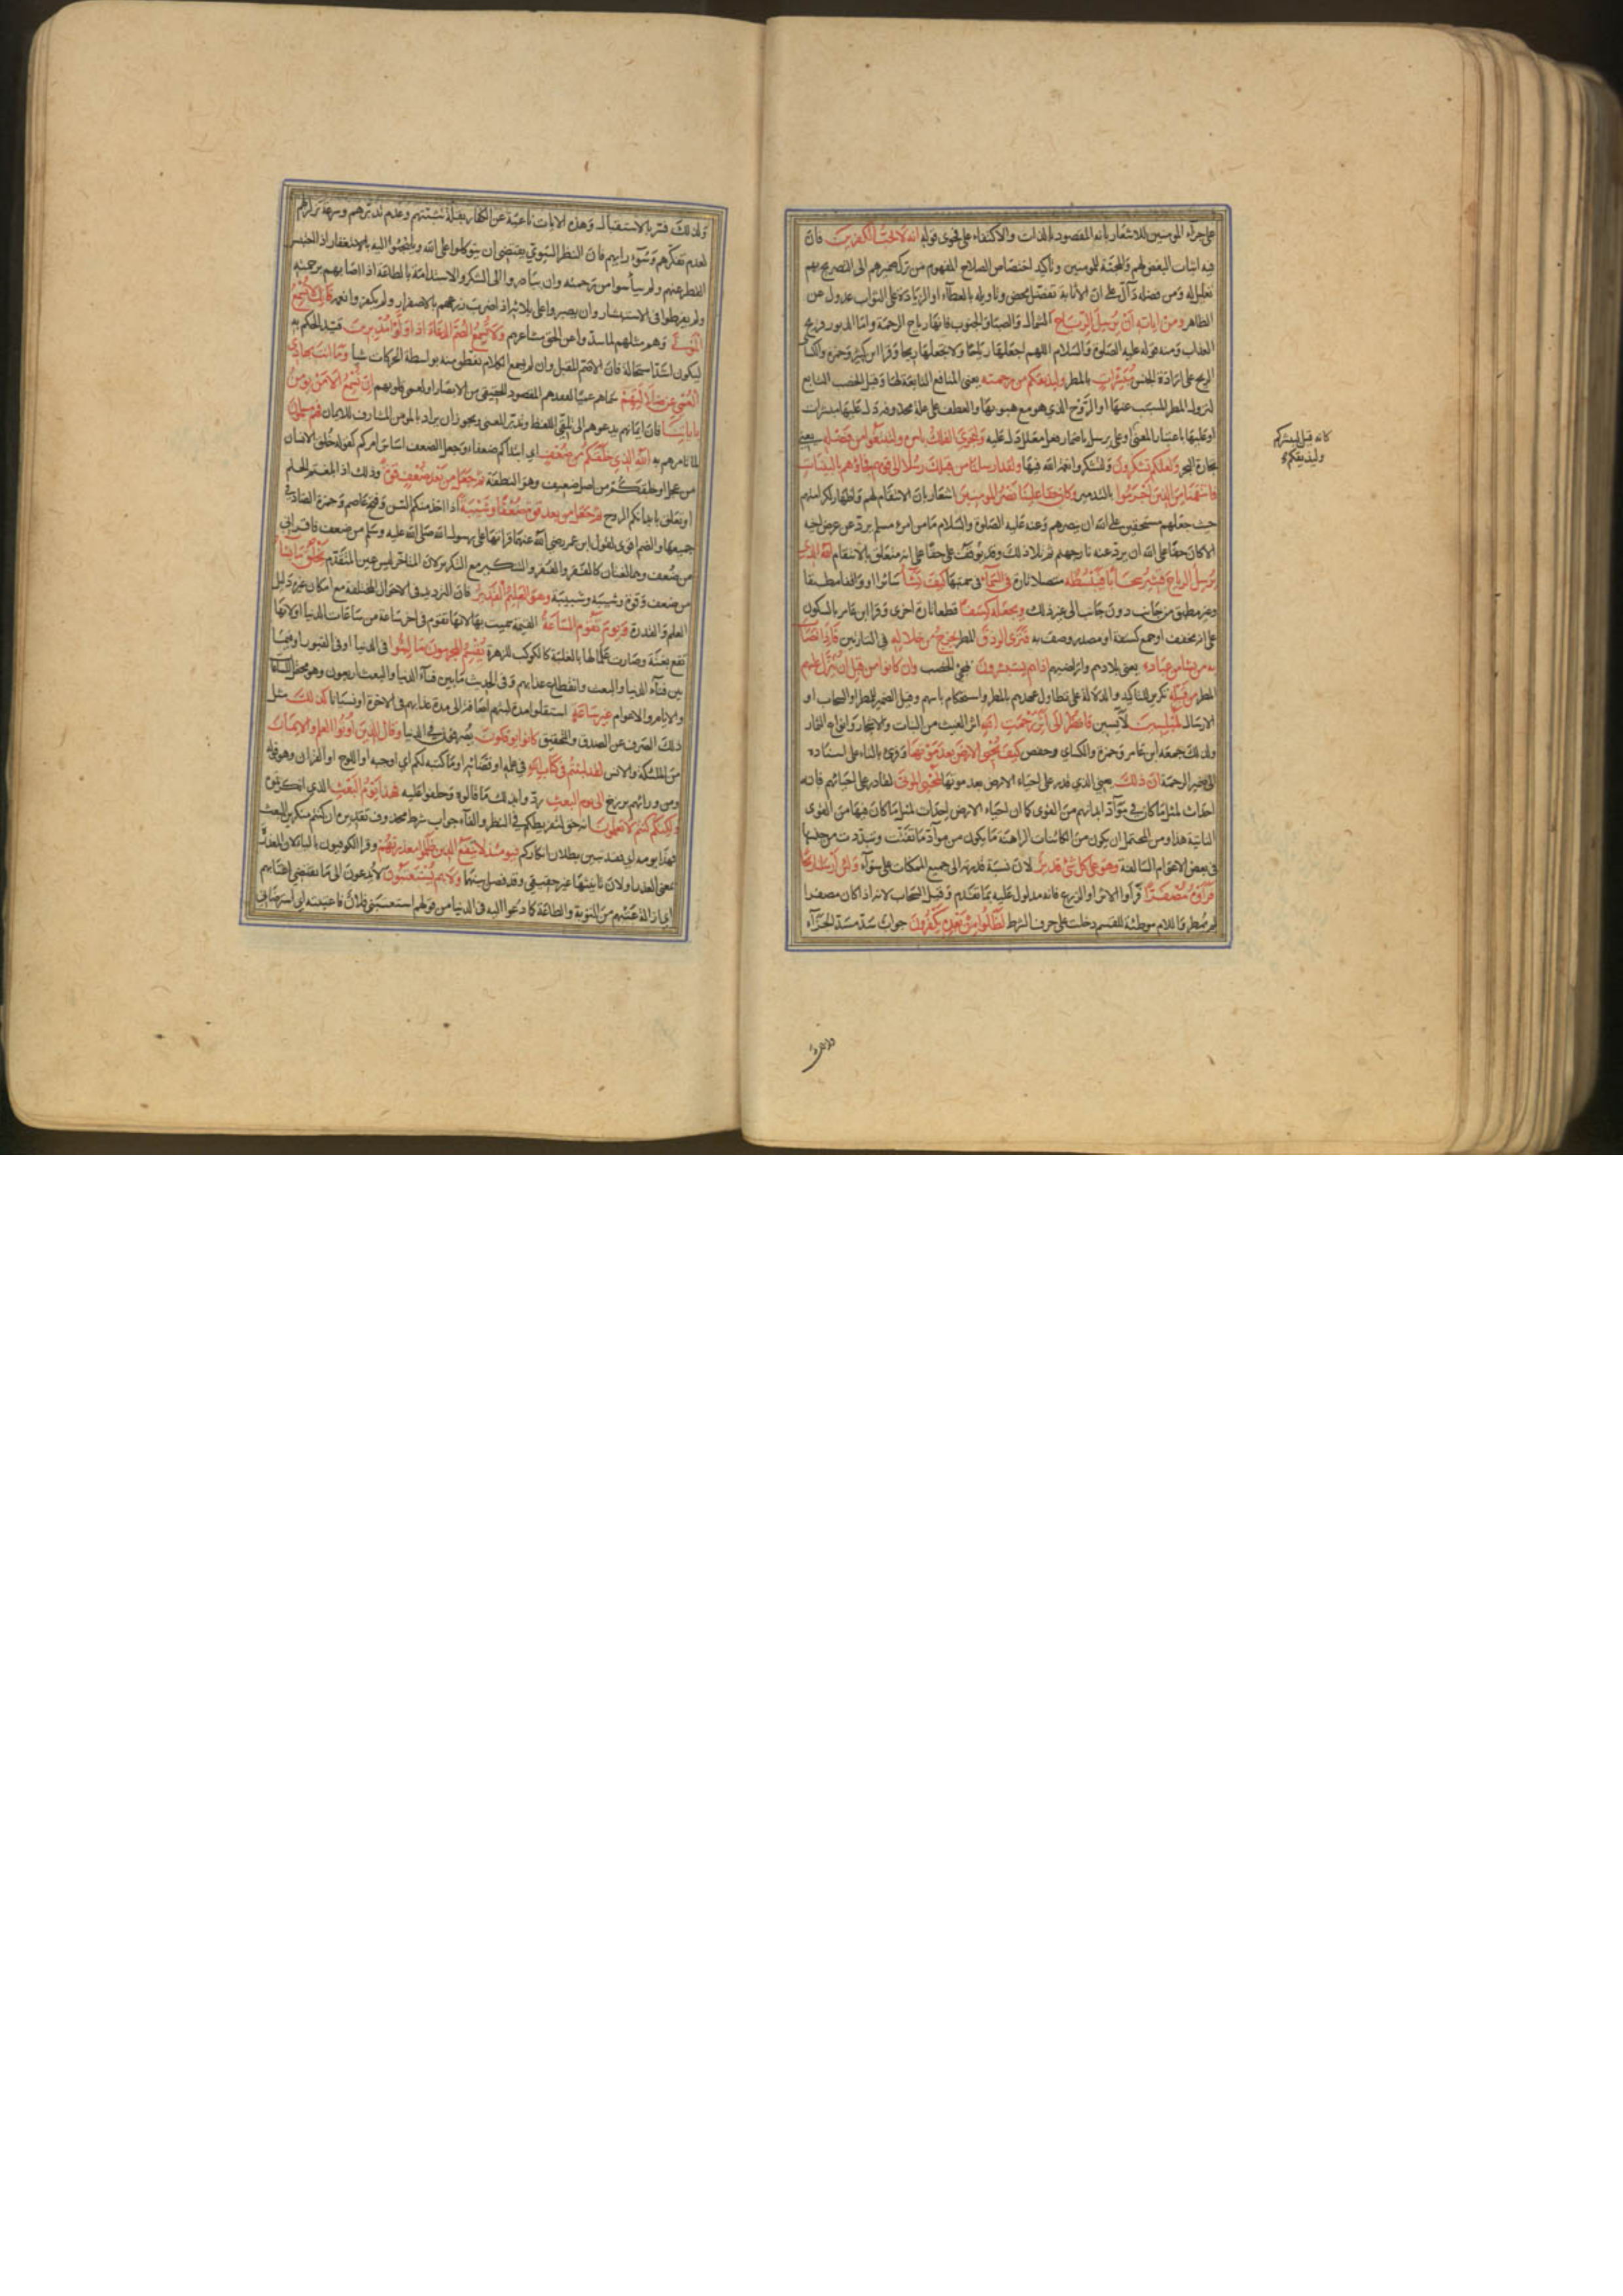 على جزاء المومنين للاشعار بانه المقصود بالذات والاكتفاء على فحوى قوله انه لا يحب الكفرين فان
فيه اثبات البغض لهم والمحبة للمومنين وتاكيد اختصاص الصلاح المفهوم من ترك ضميرهم الى التصريح بهم
تعليل له ومن فضله دال على ان الاثابة تفضل محض وتاويله بالعطاء او الزيادة على الثواب عدول عن
الظاهر ومن اياته ان يرسل الرياح الشمال والصبا والجنوب فانها رياح الرحمة واما الدبور فريح
العذاب ومنه قوله عليه الصلوة والسلام اللهم اجعلها رياحا ولا تجعلها ريحا وقرا ابن كثير وحمزة والكسا
الريح على ارادة الجنس مبشرات بالمطر وليذيقكم من رحمته يعنى المنافع التابعة لها وقيل الخصب التابع
لنزول المطر المسبب عنها او الروح الذي هو مع هبوبها والعطف على علة محذوفة دل عليها مبشرات
او عليها باعتبار المعنى او على يرسل باضمار فعل معلل دل عليه ولتجرى الفلك بامره ولتبتغوا من فضله يعنى
تجارة البحر ولعلكم تشكرون ولتشكروا نعمة الله فيها ولقد ارسلنا من قبلك رسلا الى قومهم فجاؤهم بالبينات
فانتقمنا من الذين اجرموا بالتدمير وكان حقا علينا نصر المومنين اشعار بان الانتقام لهم واظهار لكرامتهم
حيث جعلهم مستحقين على الله ان ينصرهم وعنه عليه الصلوة والسلام ما من امرئ مسلم يرد عن عرض اخيه
الا كان حقا على الله ان يرد عنه نار جهنم ثم تلا ذلك وقد يوقف على حقا على انه متعلق بالانتقام الله الذي
يرسل الرياح فتثير سحابا فيبسطه متصلا تارة في السماء في سمتها كيف يشا سائرا او واقفا مطبقا
وغير مطبق من جانب دون جانب الى غير ذلك ويجعله كسفا قطعا تارة اخرى وقرا ابن عامر بالسكون
على انه مخفف او جمع كسفة او مصدر وصف به فترى الودق المطر يخرج من خلاله في التارتين فاذا اصاب
به من يشا من عباده يعنى بلادهم واراضيهم اذا هم يستبشرون لمجئ الخصب وان كانوا من قبل ان ينزل عليهم
المطر من قبله تكرير للتاكيد والدلالة على تطاول عهدهم بالمطر واستحكام ياسهم وقيل الضمير للمطر او السحاب او
الارسال لمبلسين لآيسين فانظر الى اثر رحمت الله اثر الغيث من النبات والاشجار وانواع الثمار
ولذلك جمعه ابن عامر وحمزة والكساى وحفص كيف يحيى الارض بعد موتها وقرئ بالتاء على اسناده
الى ضمير الرحمة ان ذلك يعنى الذي قدر على احياء الارض بعد موتها لمحيى الموتى لقادر على احيائهم فانه
احداث لمثل ما كان في مواد ابدانهم من القوى كما ان احياء الارض احداث لمثل ما كان فيها من القوى
النباتية هذا ومن المحتمل ان يكون من الكائنات الراهنة ما يكون من مواد ما تفتتت وتبددت من جنسها
في بعض الاعوام السالفة وهو على كل شئ قدير لان نسبة قدرته الى جميع الممكنات على سواء ولئن ارسلنا ريحا
فراوه مصفرا فراوا الاثر او الزرع فانه مدلول عليه بما تقدم وقيل السحاب لانه اذا كان مصفرا
لم يمطر واللام موطئة للقسم دخلت على حرف الشرط لظلوا من بعده يكفرون جواب سد مسد الجزاء
كانه قيل ليبشركم
وليذيقكم
ولذلك
ولذلك فسر بالاستقبال وهذه الايات ناعية عن الكفار بقلة تثبتهم وعدم تدبرهم وسرعة تزلزلهم
لعدم تفكرهم وسوء رايهم فان النظر السوي يقتضى ان يتوكلوا على الله ويلتجئوا اليه بالاستغفار اذا احتبس
القطر عنهم ولم ييأسوا من رحمته وان يبادروا الى الشكر والاستدامة بالطاعة اذا اصابهم برحمته
ولم يفرطوا في الاستبشار وان يصبروا على بلائه اذا ضرب زروعهم بالاصفرار ولم يكفروا نعمه فانك لا تسمع
الموتى وهم مثلهم لما سدوا عن الحق مشاعرهم ولا تسمع الصم الدعاء اذا ولوا مدبرين قيد الحكم به
ليكون اشد استحالة فان الاصم المقبل وان لم يسمع الكلام تفطن منه بواسطة الحركات شيا وما انت بهادى
العمى عن ضلالتهم سماهم عميا لفقدهم المقصود الحقيقى من الابصار او لعمى قلوبهم ان تسمع الا من يومن
باياتنا فان ايمانهم يدعوهم الى تلقى اللفظ وتدبر المعنى ويجوز ان يراد بالمومن المشارف للايمان فهم مسلمون
لما تامرهم به الله الذي خلقكم من ضعف اى ابتداكم ضعفاء وجعل الضعف اساس امركم كقوله خلق الانسان
من عجل او خلقكم من اصل ضعيف وهو النطفة ثم جعل من بعد ضعف قوة وذلك اذا بلغتم الحلم
او تعلق بابدانكم الروح ثم جعل من بعد قوة ضعفا وشيبة اذا اخذ منكم السن وفتح عاصم وحمزة الضاد في
جميعها والضم اقوى لقول ابن عمر رضي الله عنهما قراتها على رسول الله صلى الله عليه وسلم من ضعف فاقرانى
من ضعف وهما لغتان كالفقر والفقر والتنكير مع التكرير لان المتاخر ليس عين المتقدم يخلق ما يشاء
من ضعف وقوة وشيبة وشبيبة وهو العليم القدير فان الترديد في الاحوال المختلفة مع امكان غيره دليل
العلم والقدرة ويوم تقوم الساعة القيمة سميت بها لانها تقوم في اخر ساعة من ساعات الدنيا او لانها
تقع بغتة وصارت علما لها بالغلبة كالكوكب للزهرة يقسم المجرمون ما لبثوا في الدنيا او في القبور او فيما
بين فناء الدنيا والبعث وانقطاع عذابهم وفي الحديث ما بين فناء الدنيا والبعث اربعون وهو محتمل الساعا
والايام والاعوام غير ساعة استقلوا مدة لبثهم اضافة الى مدة عذابهم في الاخرة او نسيانا كذلك مثل
ذلك الصرف عن الصدق والتحقيق كانوا يوفكون يصرفون في الدنيا وقال الذين اوتوا العلم والايمان
من الملئكة والانس لقد لبثتم في كتاب الله في علمه او قضائه او ما كتبه لكم اي اوجبه او اللوح او القران وهو قوله
ومن ورائهم برزخ الى يوم البعث رد وا بذلك ما قالوه وحلفوا عليه فهذا يوم البعث الذي انكرتموه
ولكنكم كنتم لا تعلمون انه حق لتفريطكم في النظر والفاء جواب شرط محذوف تقديره ان كنتم منكرين البعث
فهذا يومه اي فقد تبين بطلان انكاركم فيومئذ لا تنفع الذين ظلموا معذرتهم وقرا الكوفيون بالياء لان المعذرة
بمعنى العذر او لان تانيثها غير حقيقى وقد فصل بينهما ولا هم يستعتبون لا يدعون الى ما يقتضى اعتابهم
اى ازالة عتبهم من التوبة والطاعة كما دعوا اليه في الدنيا من قولهم استعتبنى فلان فاعتبته اى استرضانى